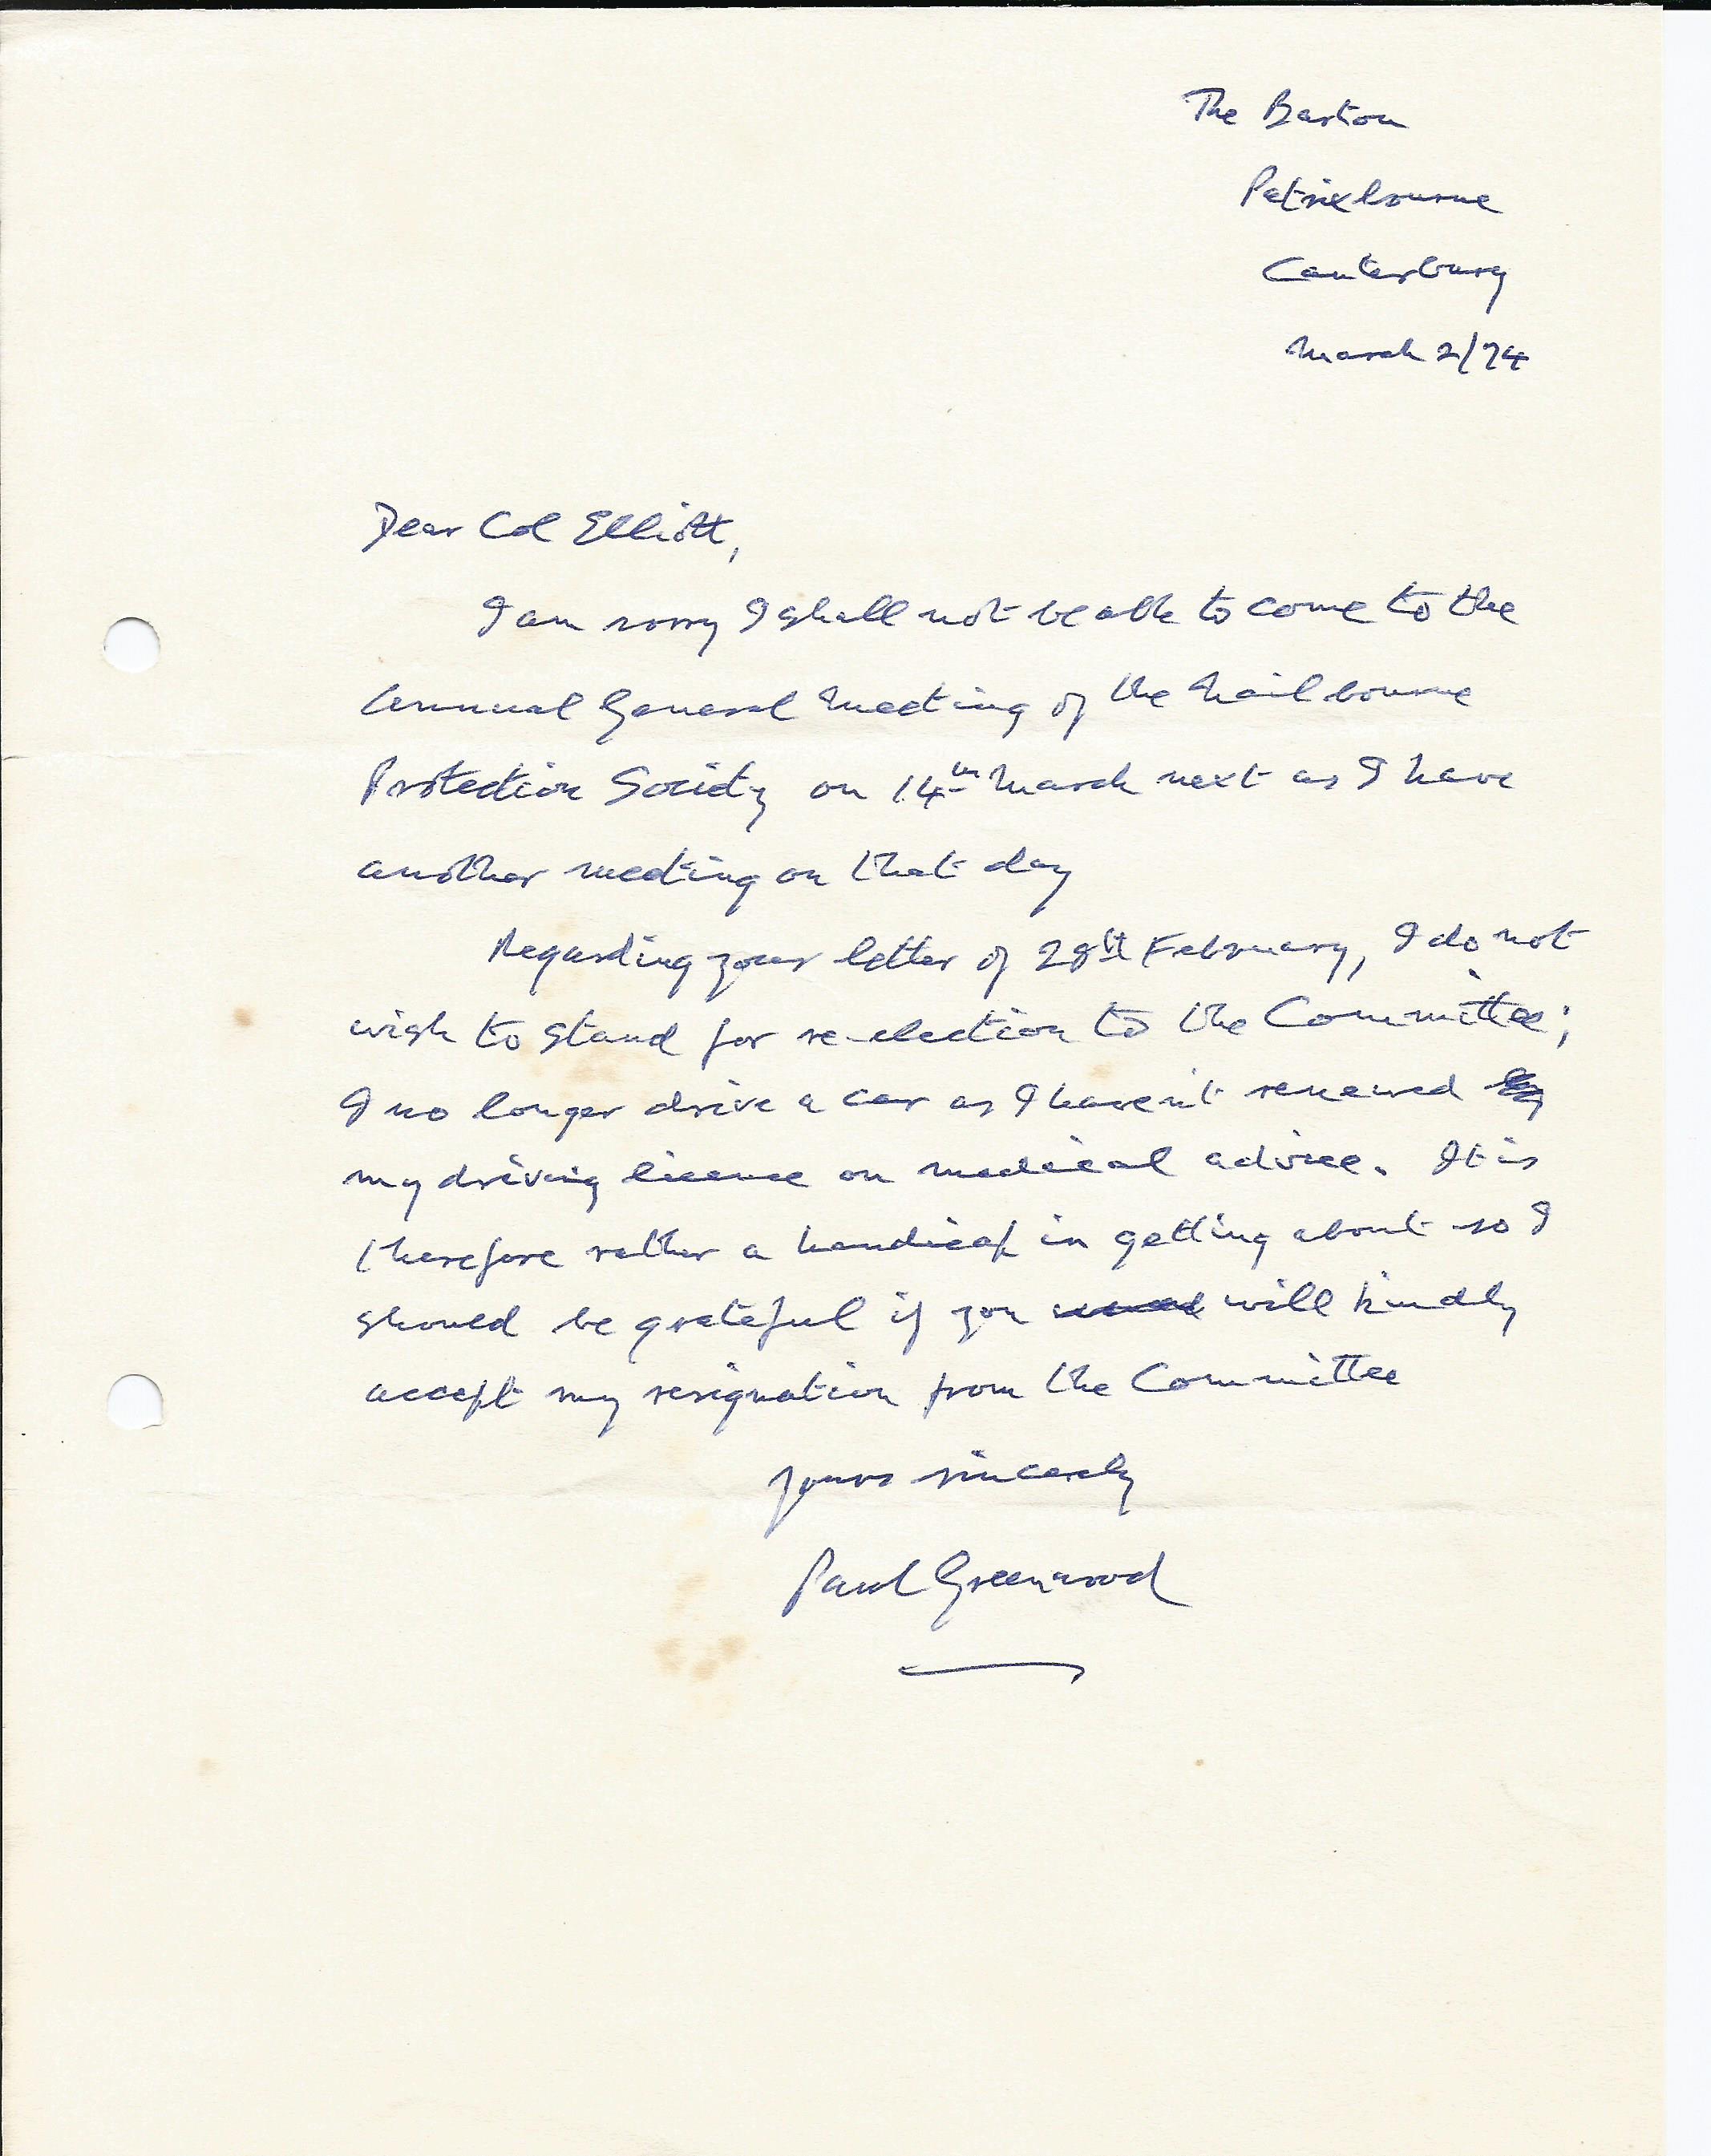 The Barton
Patrixbourne
Canterbury
March 2/74
Dear Col Elliott,
I am sorry I shall not be able to come to the
Annual General Meeting of the Nailbourne
Protection Society on 14th March next as I have
another meeting on that day
Regarding your letter of 28th February, I do not
wish to stand for re-election to the Committee;
I no longer drive a car as I haven't renewed
my driving licence on medical advice. It is
therefore rather a handicap in getting about so I
should be grateful if you will kindly
accept my resignation from the Committee
Yours sincerely
Paul Greenwood